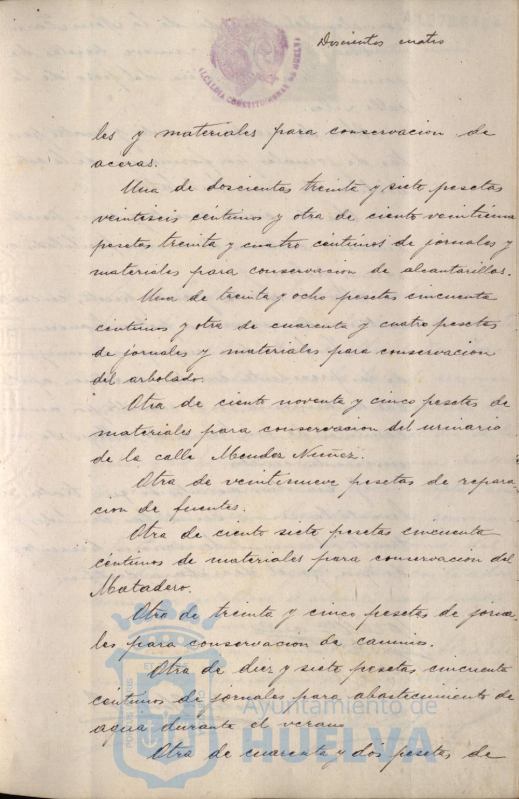 Doscientos cuatro
ALCALDIA CONSTITUCIONAL DE HUELVA
les y materiales para conservacion de
aceras.
Una de doscientas treinta y siete pesetas
veintiseis céntimos y otra de ciento veintiuna
pesetas treinta y cuatro céntimos de jornales y
materiales para conservacion de alcantarillas.
Una de treinta y ocho pesetas cincuenta
céntimos y otra de cuarenta y cuatro pesetas
de jornales y materiales para conservacion
del arbolado.
Otra de ciento noventa y cinco pesetas de
materiales para conservacion del urinario
de la calle Mendez Nuñez.
Otra de veintinueve pesetas de repara
cion de fuentes.
Otra de ciento siete pesetas cincuenta
céntimos de materiales para conservacion del
Matadero.
Otra de treinta y cinco pesetas de jorna-
les para conservacion de caminos.
Otra de diez y siete pesetas cincuenta
céntimos de jornales para abastecimiento de
agua durante el verano
Otra de cuarenta y dos pesetas de
Ayuntamiento de
HUELVA